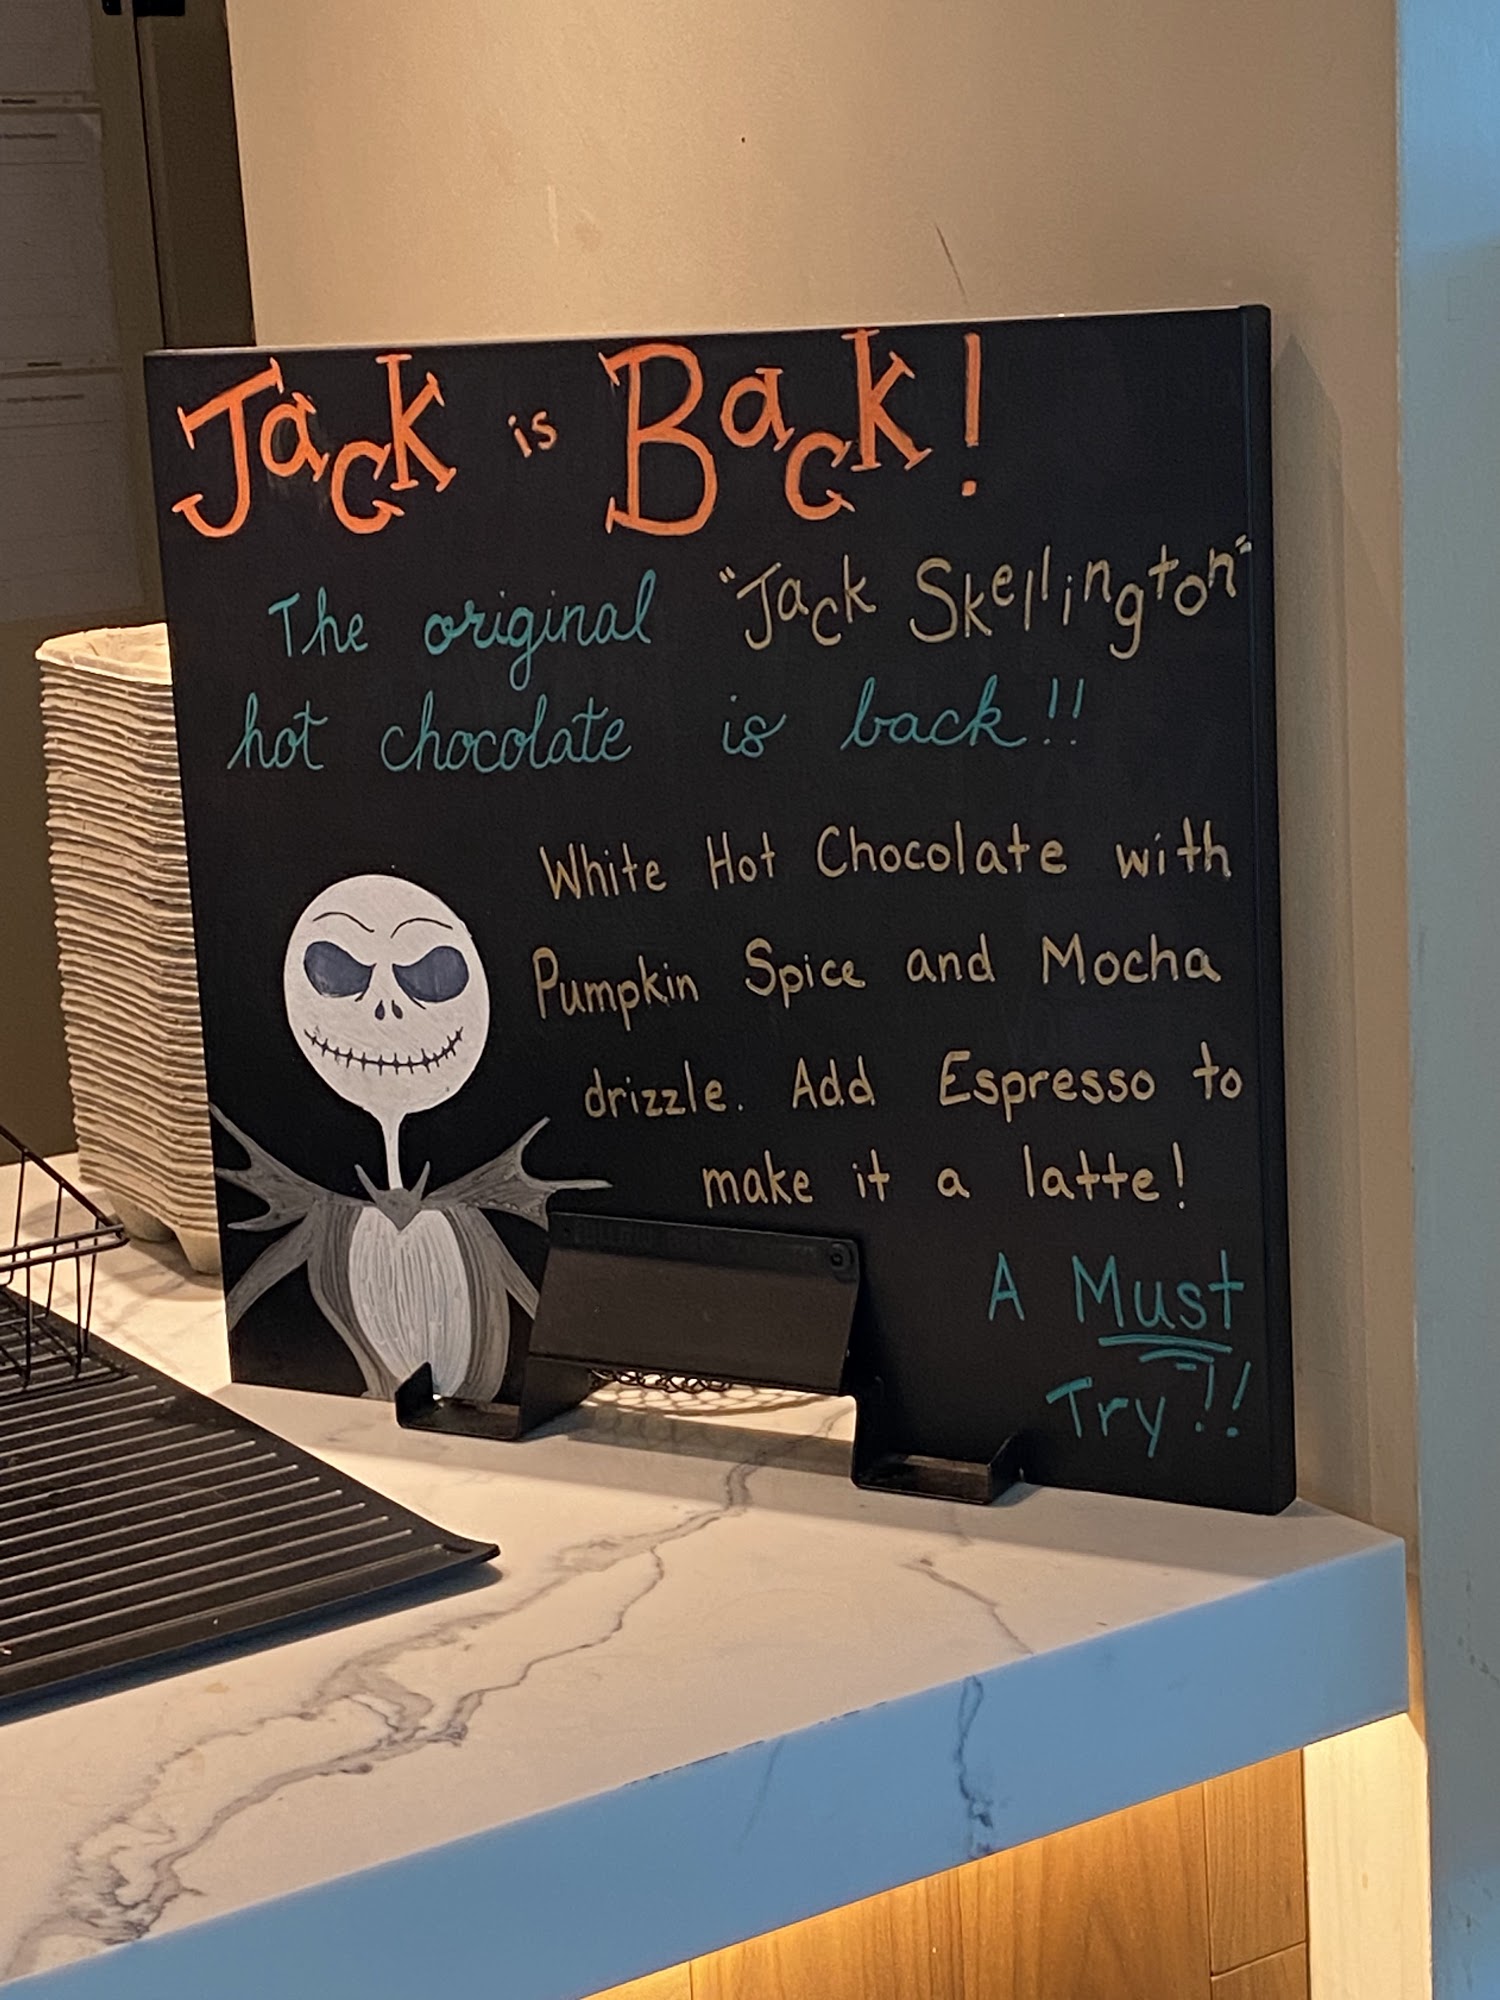 Jack is Back!
The original "Jack Skellington"
hot chocolate is back!!
White Hot Chocolate with
Pumpkin Spice and Mocha
drizzle. Add Espresso to
make it a latte!
A Must
Try!!